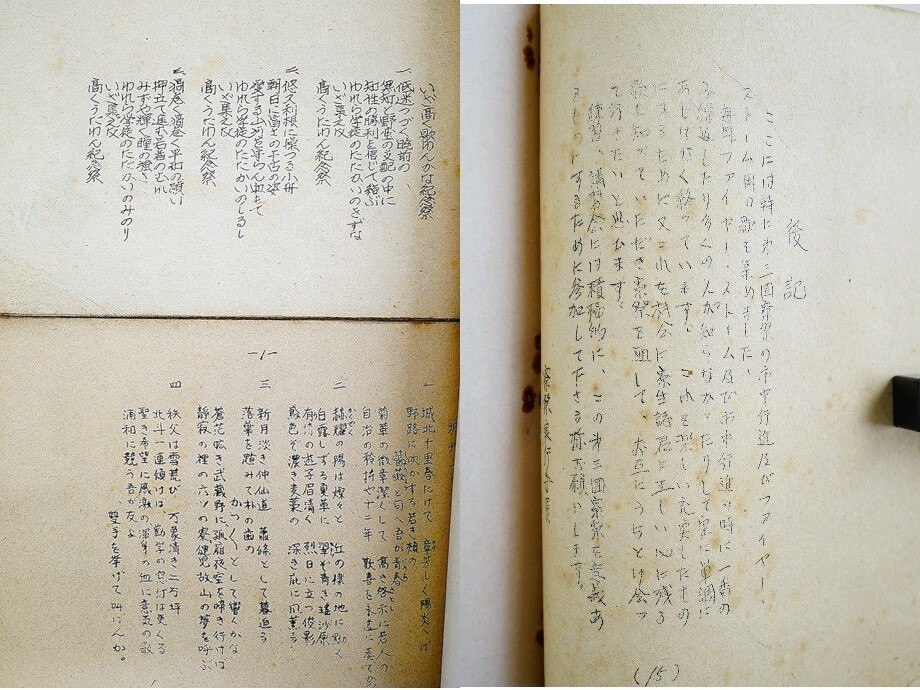 いざ高く歌わんかな紀念祭
一、低迷つづく暁前の
無知と野蛮の支配の中に
知性の勝利を信じて結ぶ
われら学徒のたたかいのきずな
いざ集え友
高くうたわん紀念祭
二、悠久利根に操つる小舟
朝日に富士の千古の姿
愛する山河を守らん血もて
われら学徒のたたかいのしるし
いざ集え友
高くうたわん紀念祭
三、渦巻く渦巻く平和の誓い
押立て進む若者のむれ
みずや輝く瞳の強さ
われら学徒のたたかいのみのり
いざ集え友
高くうたわん紀念祭
—1—
一 城北十里春にけて
野路に吹かすよ若き頬の
菊華の散章潔くして 高き啓示に若人の
自治の矜持や十二年 歓喜を永遠に奏での
二 赫燿の陽は燦々と 江の様の地に動く
白露しずる夏草に 翠ぞ青き
有情の遊子眉清く 烈日に立つ俊影
鳶色ぞ濃き麦藁の 深き庇に風薫る
三 新月淡き仲仙道 蕭條として暮迫る
落葉を踏みて朴の歯の
かつかつとして響くかな
蒼茫広き武蔵野に 孤雁夜空を啼き行けば
静寂の裡の六ツの寮 健児故山の夢を呼ぶ
四 秩父は雪荒び 万象清き二万坪
北斗一連傾けば 勤学の窓灯は更くる
聖き希望に風激の渾身の血に意気の敵
酒和に競う吾が友よ
双手を挙げて叫ばんか。
後記
ここには特に第三回寮祭の市中行進及びファイヤー、
ストーム用の歌を集めました。
毎年ファイヤー・ストーム及び市中行進の時に一番の
み繰返したり多くの人が知らなかったりして実に単調に
あじけなく終っています。これを楽しい充実したもの
にするために又これを機会に寮生諸君に正しい心に残る
歌を知っていただき寮祭を通して、お互にうちとけ合っ
て行きたいと思います。
練習、講習会には積極的に、この第三回寮祭を意義あ
るものにするために参加して下さる様お願いします。
寮祭実行委員
(15)